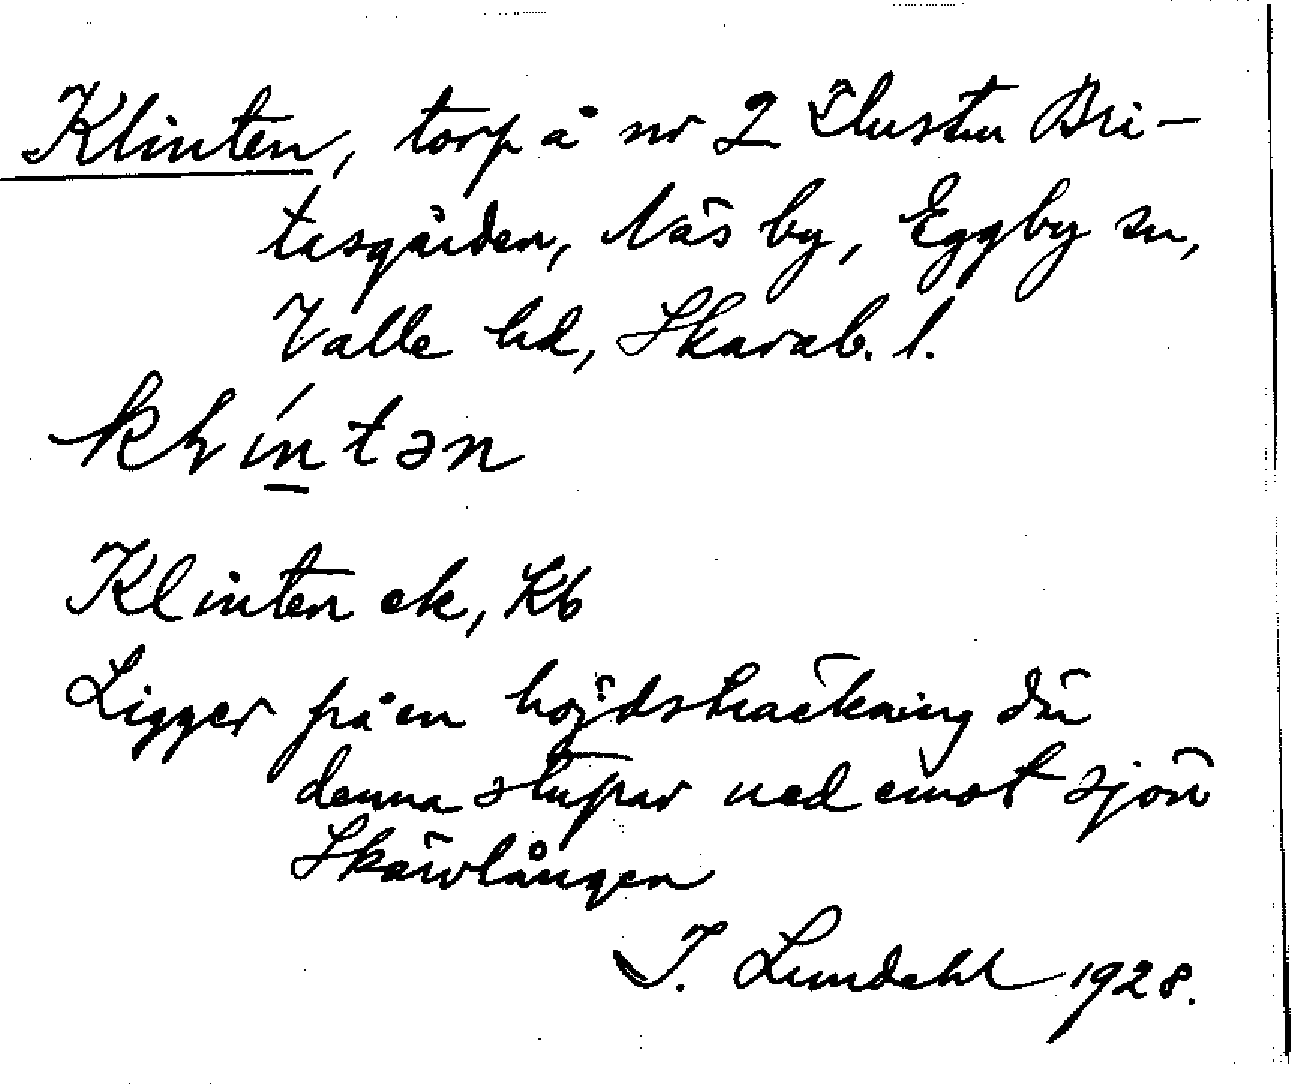 Klinten, torp å nr 2 Thusthu Bri-
tasgården, Näs by, Eggby sn,
Valle hd, Skarab. l.
klíntən
Klinten ek, Kb
Ligger på en höjdsträckning där
denna stupar ned emot sjön
Skärvlången
I. Lundahl 1928.